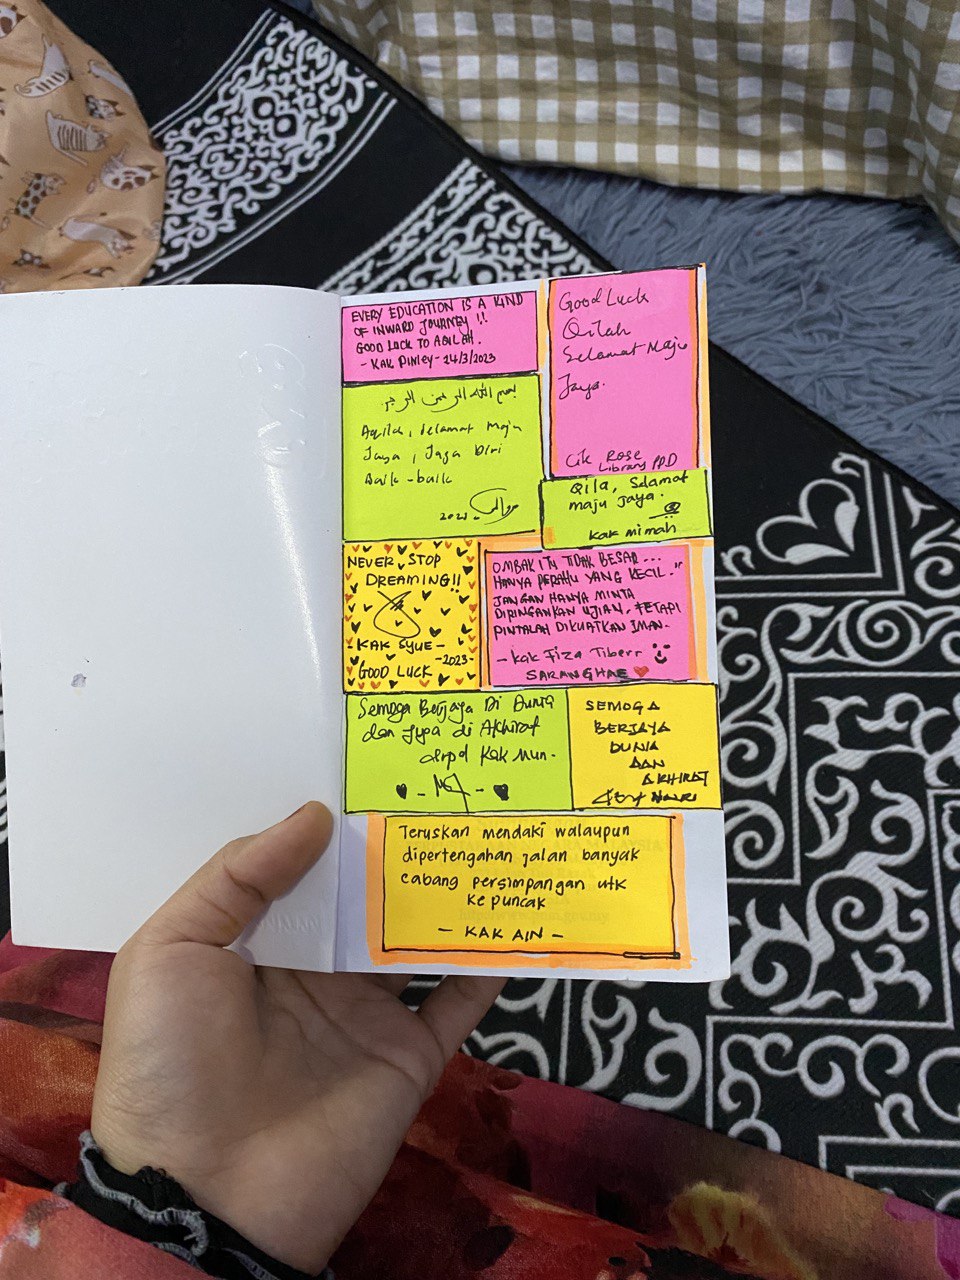 EVERY EDUCATION IS A KIND
OF INWARD JOURNEY !!
GOOD LUCK TO AQILAH.
- KAK PINLEY - 24/3/2023
Good Luck
Qilah
Selamat Maju
Jaya.
Cik Rose
Library PPD
بسم الله الرحمن الرحيم
Aqilah, Selamat Maju
Jaya, Jaga Diri
Baik-baik
2023.
Qila, Selamat
maju jaya.
Kak Mimah
NEVER STOP
DREAMING!!
-KAK SYUE-
-2023-
GOOD LUCK
OMBAK ITU TIDAK BESAR...
HANYA PERAHU YANG KECIL."
JANGAN HANYA MINTA
DIRINGANKAN UJIAN, TETAPI
PINTALAH DIKUATKAN IMAN.
- Kak Fiza Tiberr
SARANGHAE
Semoga Berjaya Di Dunia
dan Juga di Akhirat
dripd Kak Mun.
SEMOGA
BERJAYA
DUNIA
DAN
AKHIRAT
Teruskan mendaki walaupun
dipertengahan jalan banyak
cabang persimpangan utk
ke puncak
- KAK AIN -